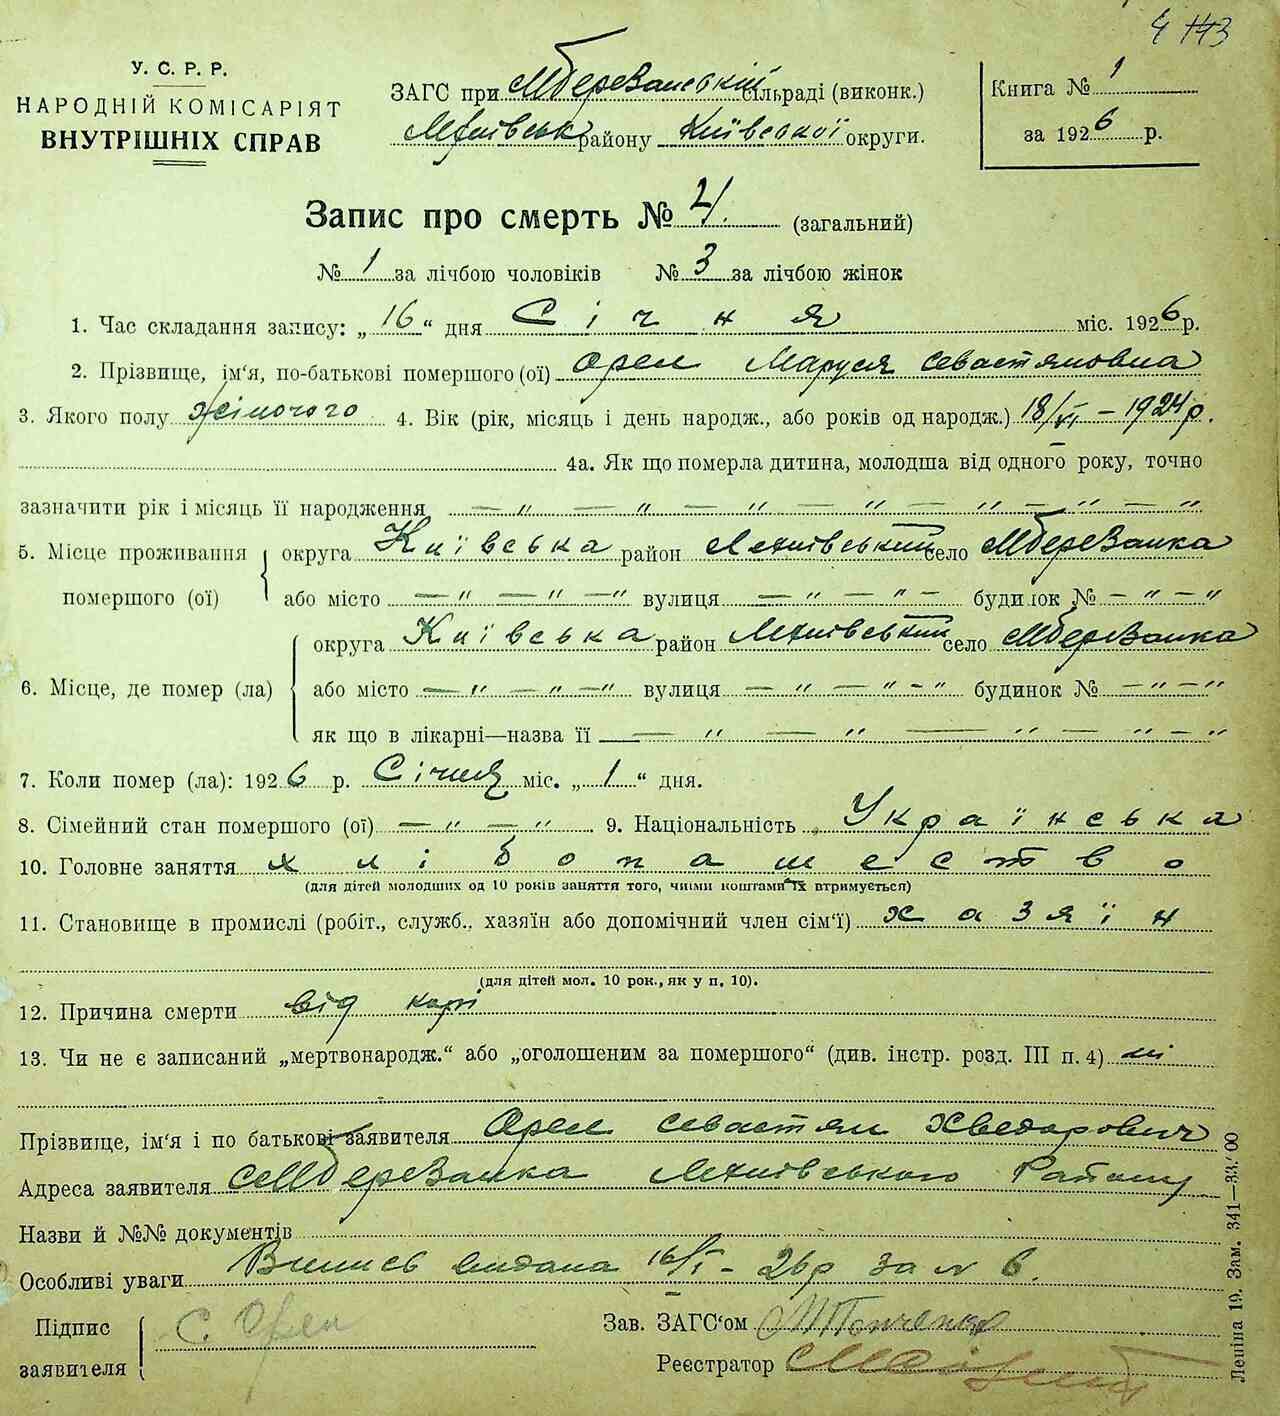 4 143
У. С. Р. Р.
НАРОДНІЙ КОМІСАРІЯТ
ВНУТРІШНІХ СПРАВ
ЗАГС при Мберезанській сільраді (виконк.)
району Київської округи.
Книга № 1
за 1926 р.
Запис про смерть № 4. (загальний)
№ 1 за лічбою чоловіків № 3 за лічбою жінок
1. Час складання запису: „16“ дня Січня міс. 1926 р.
2. Прізвище, ім'я, по-батькові помершого (ої) Орел Маруся Севастяновна
3. Якого полу жіночого 4. Вік (рік, місяць і день народж., або років од народж.) 18/VI – 1924 р.
4а. Як що померла дитина, молодша від одного року, точно
зазначити рік і місяць її народження — „ — „ — „ — „ — „ — „ — „
5. Місце проживання помершого (ої) округа Київська район село Мберезанка
або місто — „ — „ — „ вулиця — „ — „ — будинок № — „ — „
6. Місце, де помер (ла) округа Київська район село Мберезанка
або місто — „ — „ — „ вулиця — „ — „ – „ будинок № — „ — „
як що в лікарні—назва її — „ — „ — „ — „ – „
7. Коли помер (ла): 1926 р. Січня міс. „1“ дня.
8. Сімейний стан помершого (ої) — „ — „ 9. Національність Українська
10. Головне заняття хлібопашество
(для дітей молодших од 10 років заняття того, чиїми коштами їх втримується)
11. Становище в промислі (робіт., служб., хазяїн або допомічний член сім'ї) хазяїн
(для дітей мол. 10 рок., як у п. 10).
12. Причина смерти від корі
13. Чи не є записаний „мертвонародж.“ або „оголошеним за помершого“ (див. інстр. розд. III п. 4) ні
Прізвище, ім'я і по батькові заявителя Орел Севастян Хведорович
Адреса заявителя с. Мберезанка Району
Назви й №№ документів
Особливі уваги Випись видана 16/I – 26 р за № 6.
Підпис заявителя С. Орел
Зав. ЗАГС'ом
Реєстратор
Леніна 19. Зам. 341—33.000